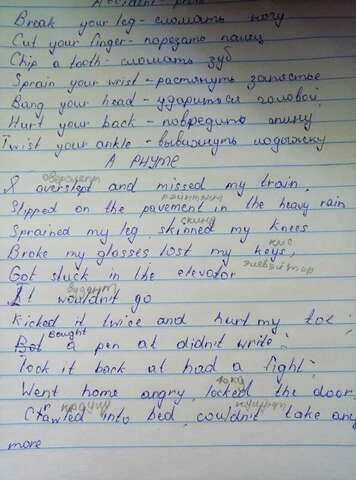 Break your leg - сломать ногу
Cut your finger - порезать палец
Chip a tooth - сломать зуб
Sprain your wrist - растянуть запястье
Bang your head - удариться головой
Hurt your back - повредить спину
Twist your ankle - вывихнуть лодыжку
A RHYME
I overslept and missed my train,
Slipped on the pavement in the heavy rain
скинд
Sprained my leg, skinned my knees
Broke my glosses, lost my keys,
элевейтор
Got stuck in the elevator
It wouldn't go
Kicked it twice and hurt my toe
Bought
a pen at didn't write;
Took it back at had a fight;
Went home angry, locked the door,
Crawled into bed, couldn't take any
more